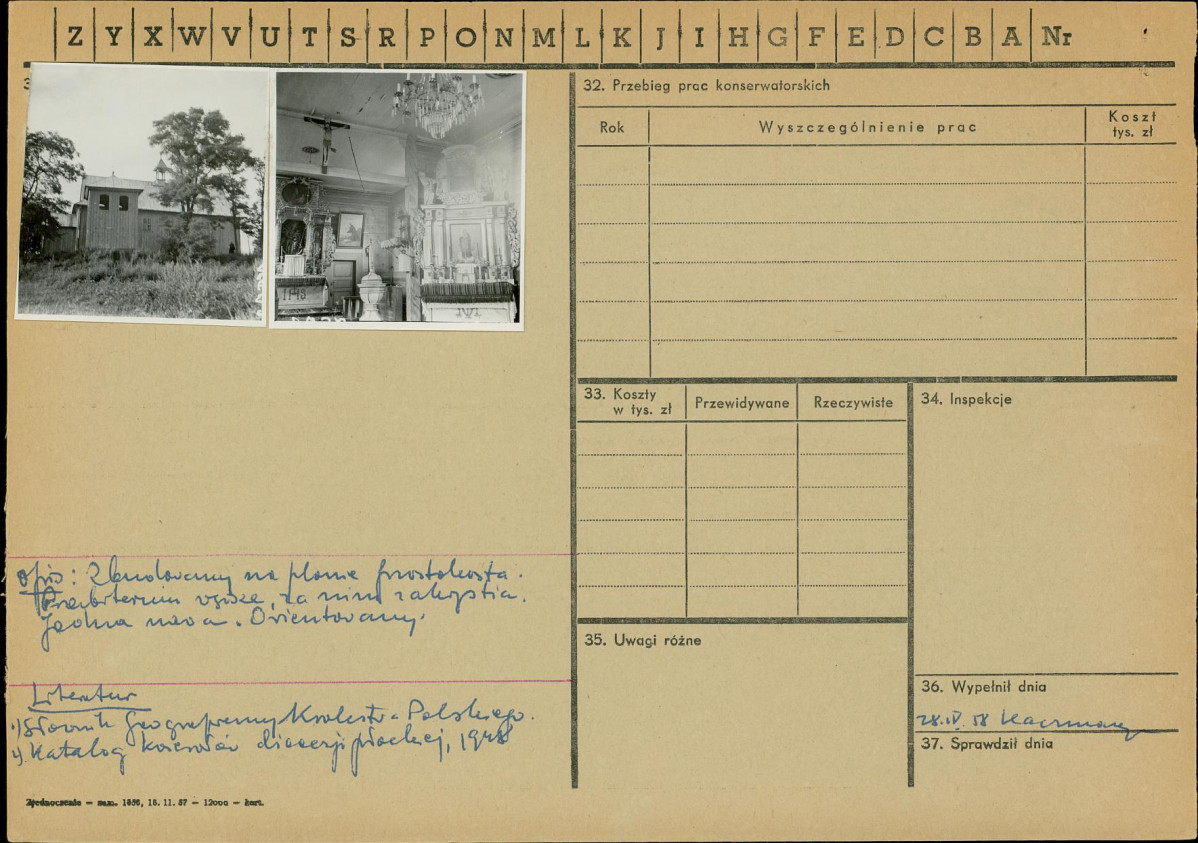 Z Y X W V U T S R P O N M L K J I H G F E D C B A Nr
32. Przebieg prac konserwatorskich
Rok
Wyszczególnienie prac
Koszt
tys. zł
33. Koszty
w tys. zł
Przewidywane
Rzeczywiste
34. Inspekcje
opis: Zbudowany na planie prostokąta.
Prezbiterium węższe, za nim zakrystia.
Jedna nawa. Orientowany.
35. Uwagi różne
Literatur
1) Słownik Geograficzny Królestwa Polskiego.
2) Katalog kościołów diecezji płockiej, 1948
36. Wypełnił dnia
28.IV.58
37. Sprawdził dnia
Zjednoczenie — zam. 1656, 16. 11. 57 — 12000 — kart.